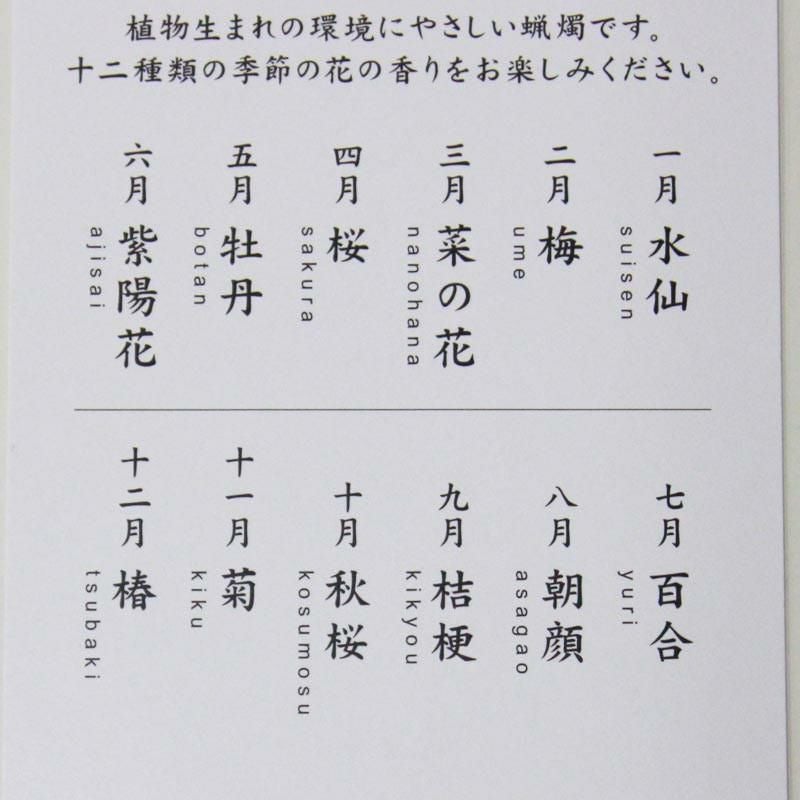 植物生まれの環境にやさしい蝋燭です。
十二種類の季節の花の香りをお楽しみください。
一月 水仙
suisen
二月 梅
ume
三月 菜の花
nanohana
四月 桜
sakura
五月 牡丹
botan
六月 紫陽花
ajisai
七月 百合
yuri
八月 朝顔
asagao
九月 桔梗
kikyou
十月 秋桜
kosumosu
十一月 菊
kiku
十二月 椿
tsubaki